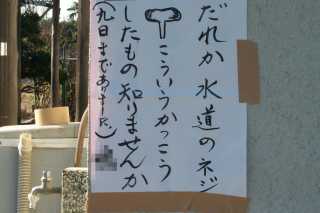 だれか水道のネジ
こういうかっこう
したもの知りませんか
(九日まであります。)